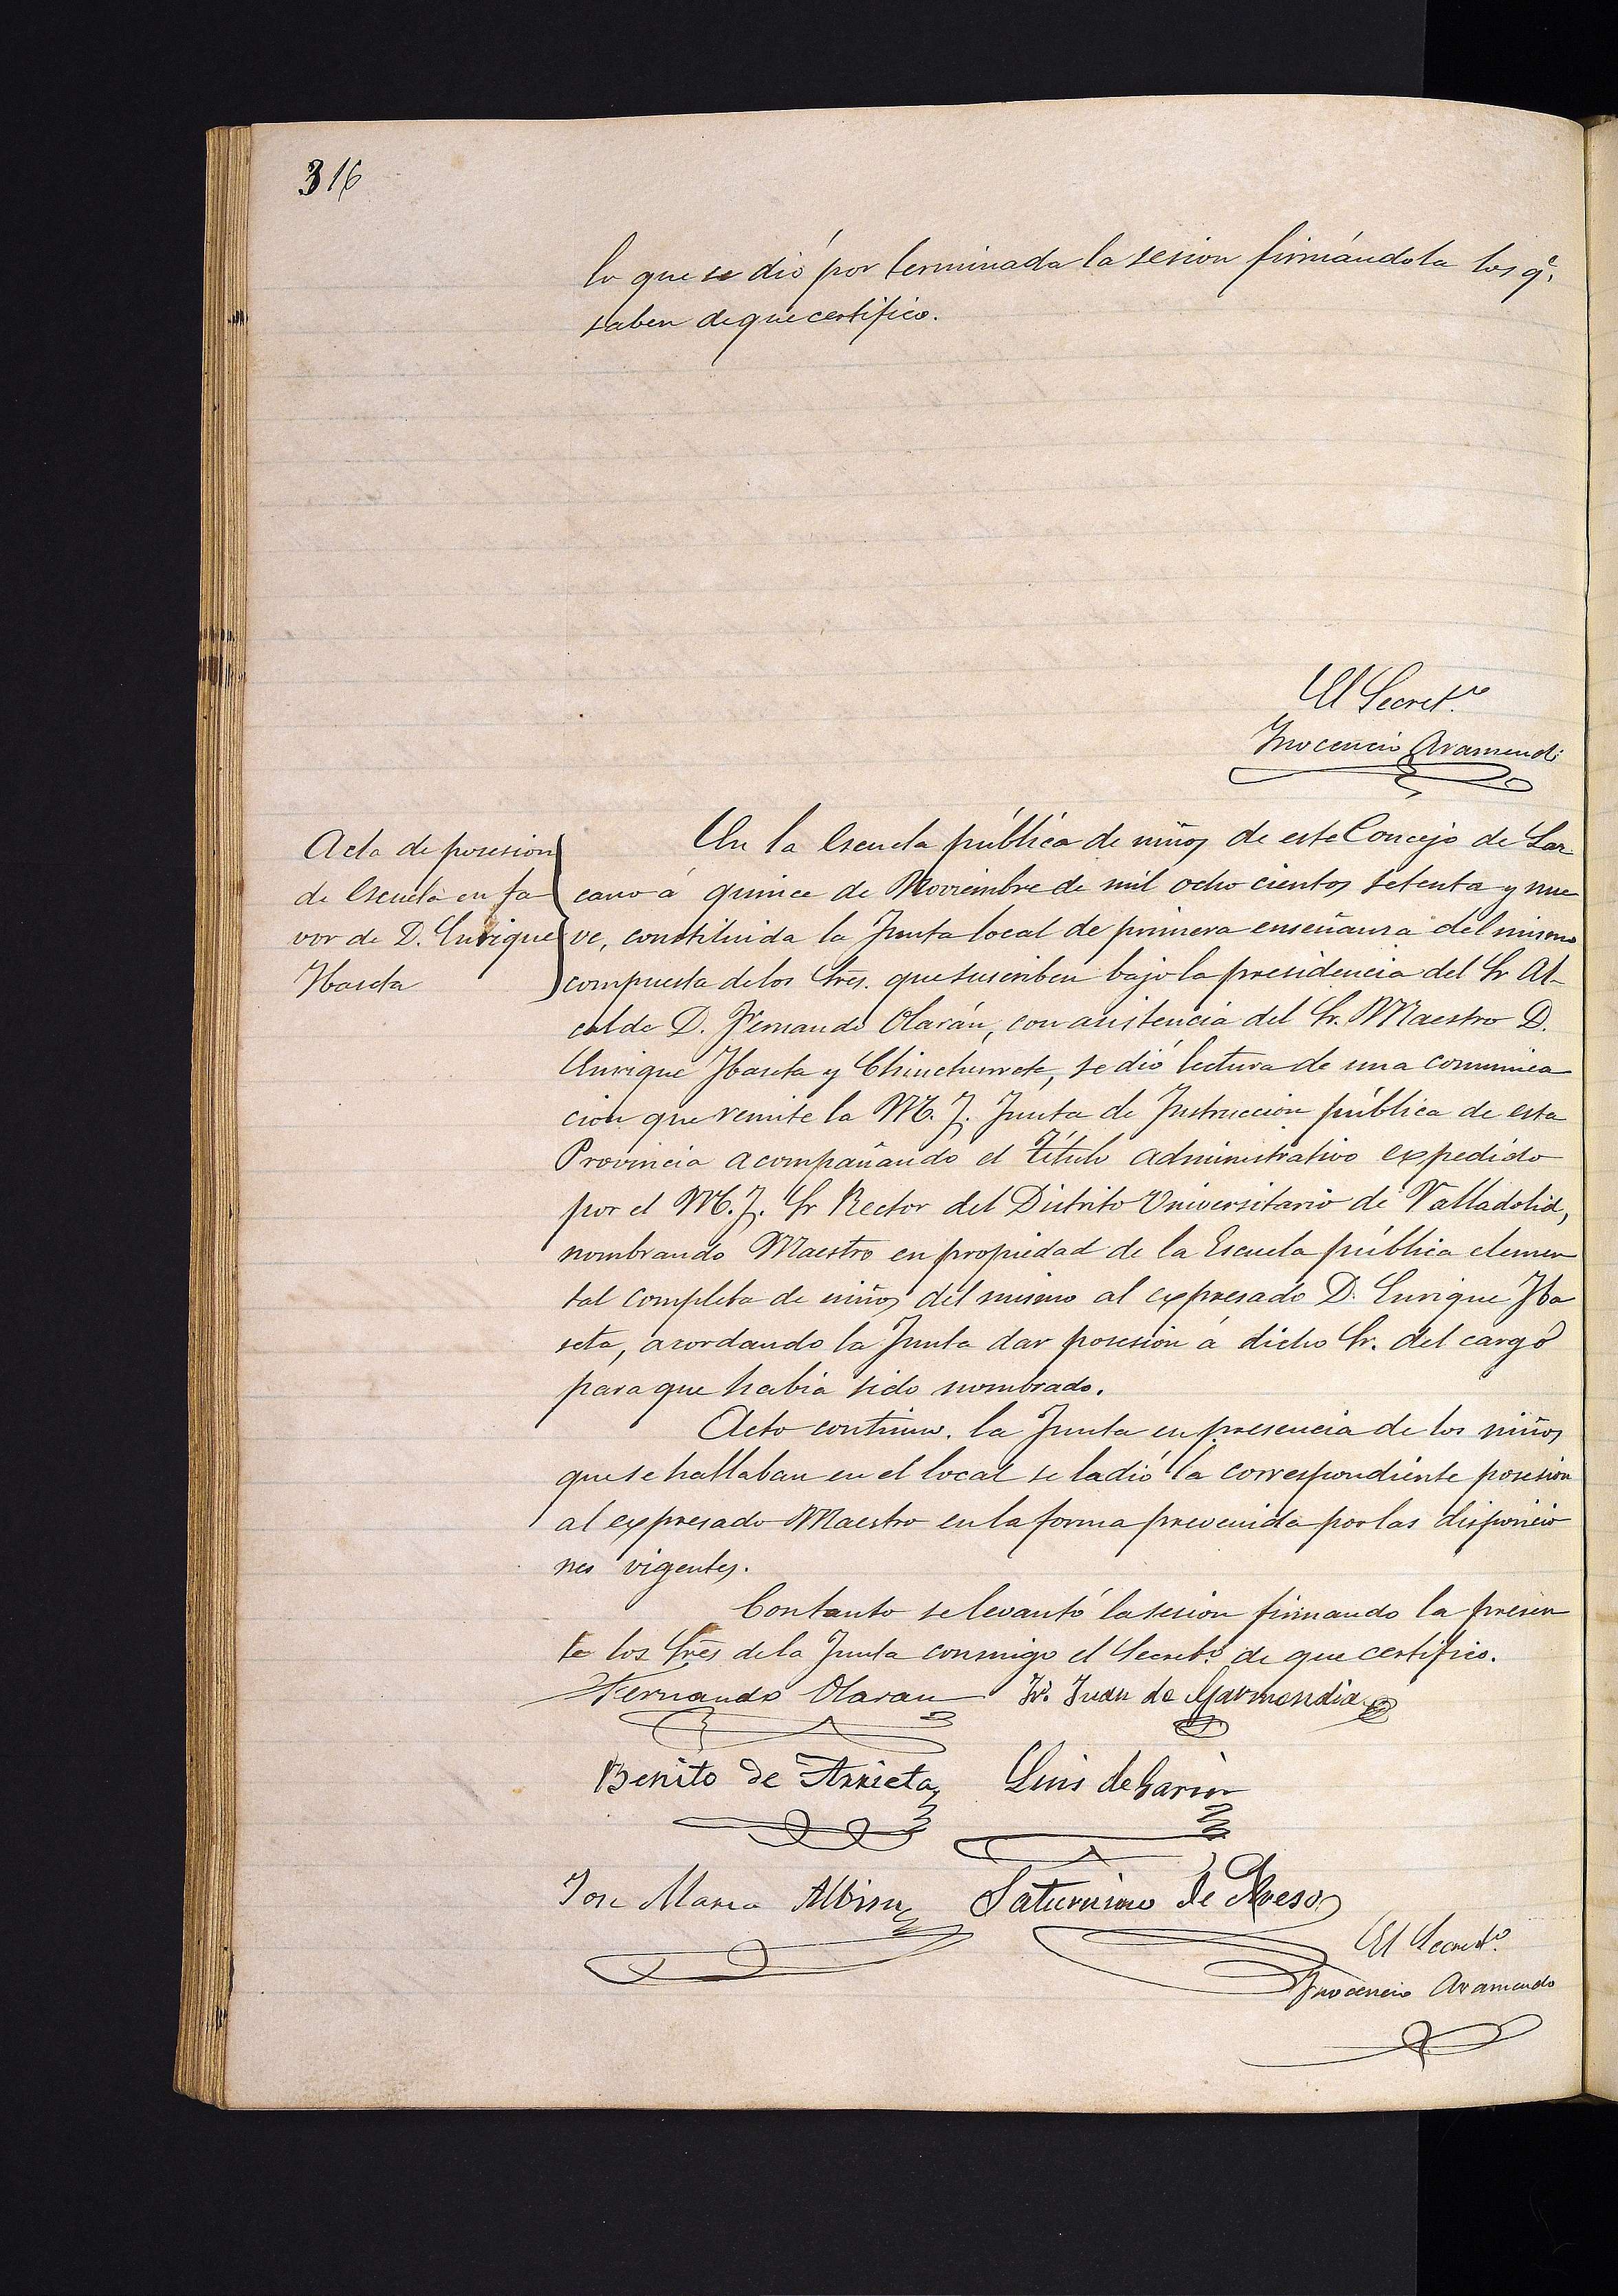 316
lo que se dió por terminada la sesion firmándola los q.^e
saben de que certifico.
El Secret.^rio
Ynocencio Aramendi
Acta de posesion
de Escuela en fa
vor de D. Enrique
Ybaseta
En la Escuela pública de niños de este Concejo de Laz
cano á quince de Noviembre de mil ocho cientos setenta y nue
ve, constituida la Junta local de primera enseñanza del mismo
compuesta de los Sres. que suscriben bajo la presidencia del Sr Al-
calde D. Fernando Olarán, con asistencia del Sr. Maestro D.
Enrique Ybaseta y Chinchurreta, se dió lectura de una comunica
cion que remite la M. Y. Junta de Instruccion pública de esta
Provincia acompañando el Título administrativo expedido
por el M. Y. Sr Rector del Distrito Universitario de Valladolid,
nombrando Maestro en propiedad de la Escuela pública elemen
tal completa de niños del mismo al expresado D. Enrique Yba
seta, acordando la Junta dar posesion á dicho Sr. del cargo
para que habia sido nombrado.
Acto continuo. la Junta en presencia de los niños
que se hallaban en el local se la dió la correspondiente posesion
al expresado Maestro en la forma prevenida por las disposicio
nes vigentes.
Con tanto se levantó la sesion firmando la presen
te los Sres de la Junta conmigo el Secret.º de que certifico.
Fernando Olaran Juan de Garmendia
Benito de Arrieta Luis de
Jose Maria Albisu Saturnino de
El Secret.º
Ynocencio Aramendi